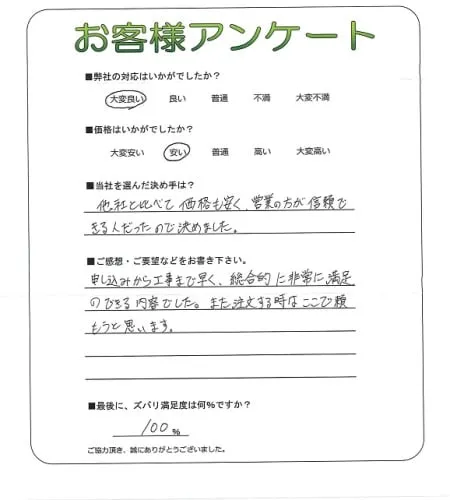 お客様アンケート
■弊社の対応はいかがでしたか?
大変良い 良い 普通 不満 大変不満
■価格はいかがでしたか?
大変安い 安い 普通 高い 大変高い
■当社を選んだ決め手は?
他社と比べて価格も安く、営業の方が信頼で
きる人だったので決めました。
■ご感想・ご要望などをお書き下さい。
申し込みから工事まで早く、総合的に非常に満足
のできる内容でした。また注文する時はここで頼
もうと思います。
■最後に、ズバリ満足度は何%ですか?
100 %
ご協力頂き、誠にありがとうございました。